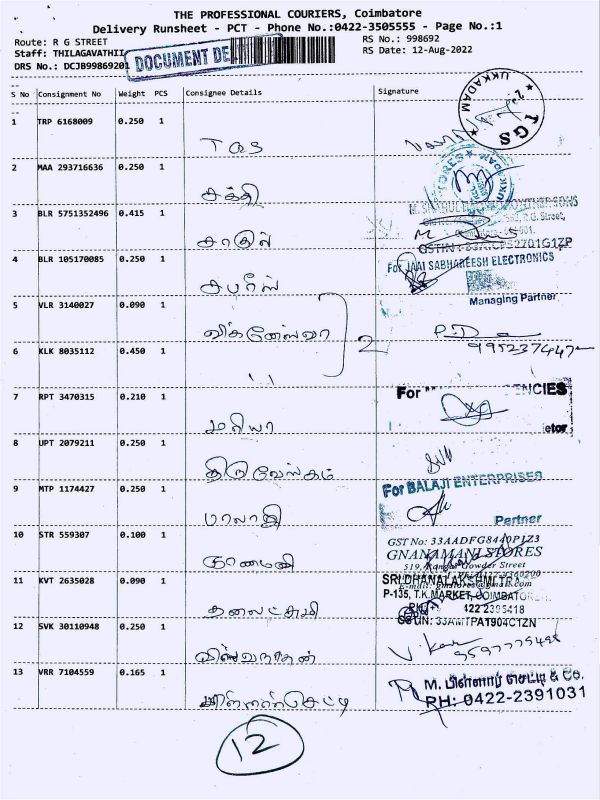 THE PROFESSIONAL COURIERS, Coimbatore
Delivery Runsheet - PCT - Phone No.:0422-3505555 - Page No.:1
Route: R G STREET RS No.: 998692
Staff: THILAGAVATHII RS Date: 12-Aug-2022
DRS No.: DCJB99869201 DOCUMENT DE
S No Consignment No Weight PCS Consignee Details Signature
UKKADAM
TGS
1 TRP 6168009 0.250 1 TGS
2 MAA 293716636 0.250 1 சக்தி
3 BLR 5751352496 0.415 1 சாகுல்
R.G. Street,
GSTIN :
4 BLR 105170085 0.250 1 சபரீஸ்
For JAAI SABHAREESH ELECTRONICS
Managing Partner
5 VLR 3140027 0.090 1 விக்னேஸ்வரா
2
995237447
6 KLK 8035112 0.450 1 ,,
7 RPT 3470315 0.210 1 மரியா
For NCIES
etor
8 UPT 2079211 0.250 1 திருவேங்கடம்
9 MTP 1174427 0.250 1 பாலாஜி
For BALAJI ENTERPRISER
Partner
10 STR 559307 0.100 1 ஞானமணி
GST No: 33AADFG8440P1Z3
GNANAMANI STORES
519, Gowder Street
11 KVT 2635028 0.090 1 தனலட்சுமி
SRI DHANALAKSHMI TRA
P-135, T.K.MARKET, COIMBATOR
422 2395418
GSTIN: 33AMTPA1904C1ZN
12 SVK 30110948 0.250 1 விஸ்வநாதன்
13 VRR 7104559 0.165 1 பிள்ளார்செட்டி
M. பிள்ளார் செட்டி & Co.
PH: 0422-2391031
12